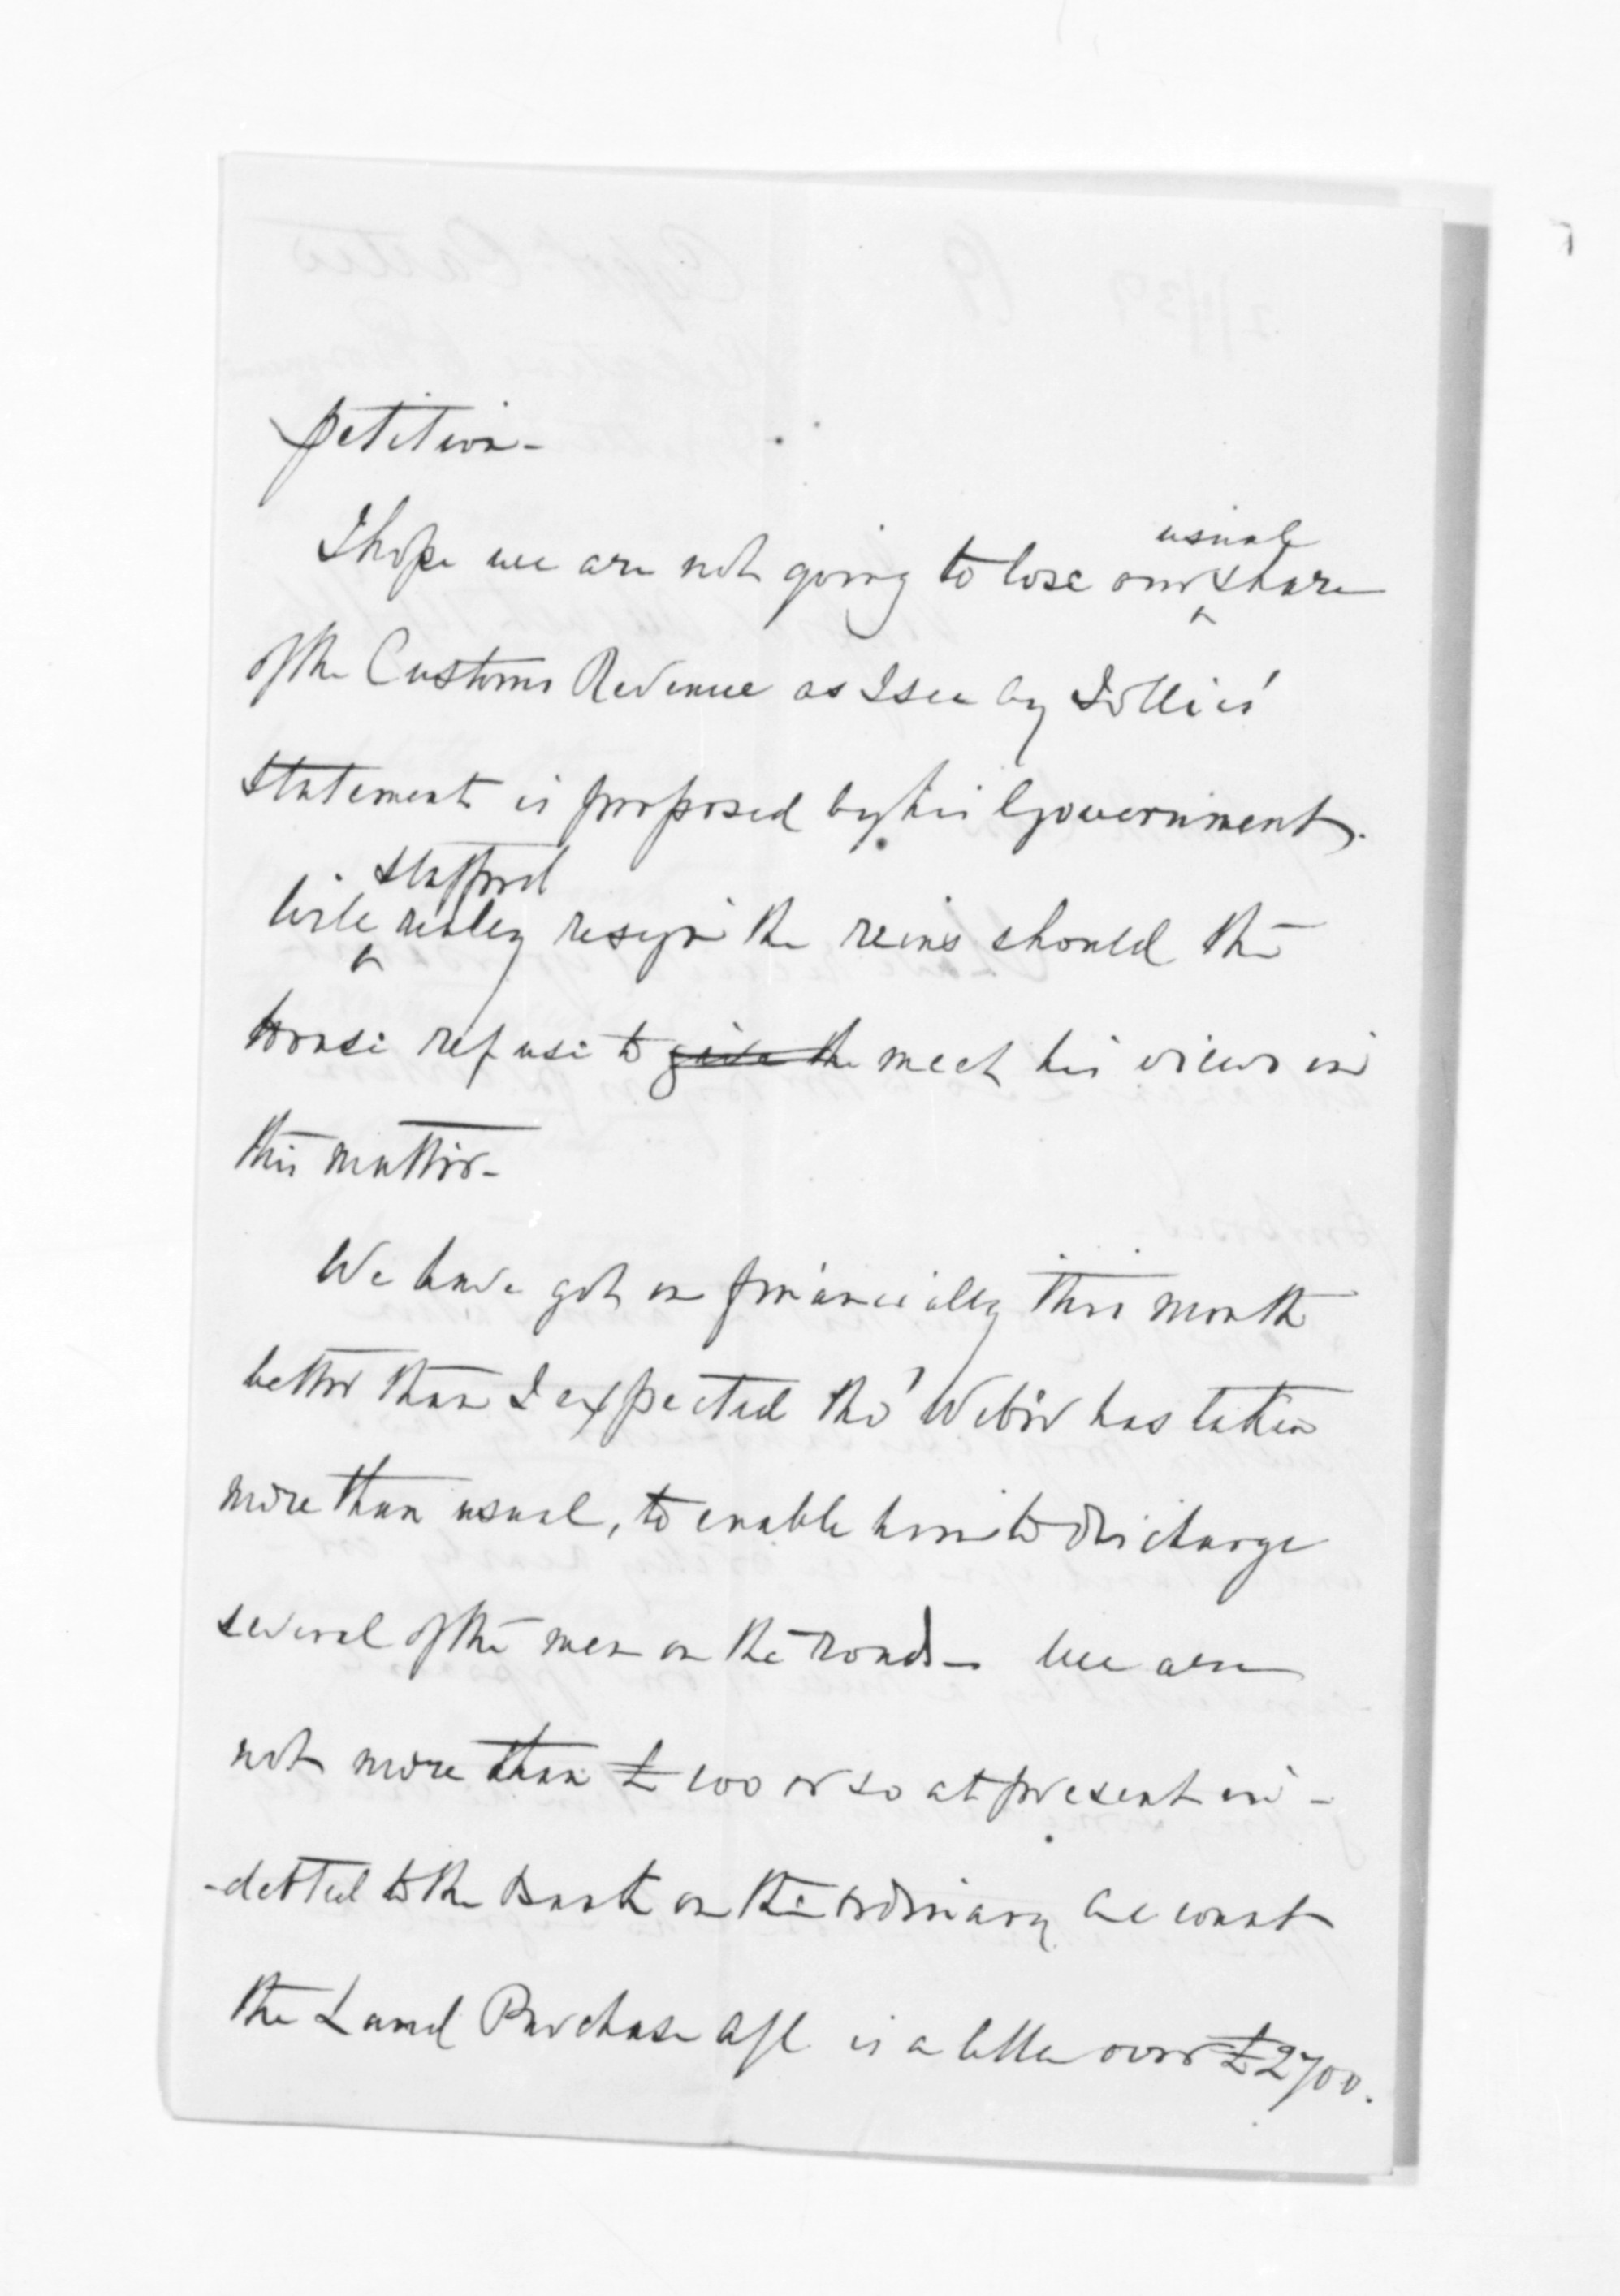 petition-
I hope we are not going to lose our usual share
of the Customs Revenue as I see by Jollies'
statement is proposed by his Government.
Will Stafford really resign the reins should the
House refuse to give the meet his views in
this matter-
We have got on financially this month
better than I expected tho' Weber has taken
more than usual, to enable him to discharge
several of the men on the roads- We are
not more than £100 or so at present in-
-debted to the Bank on the ordinary account
the Land Purchase a/c is a little over £2700.